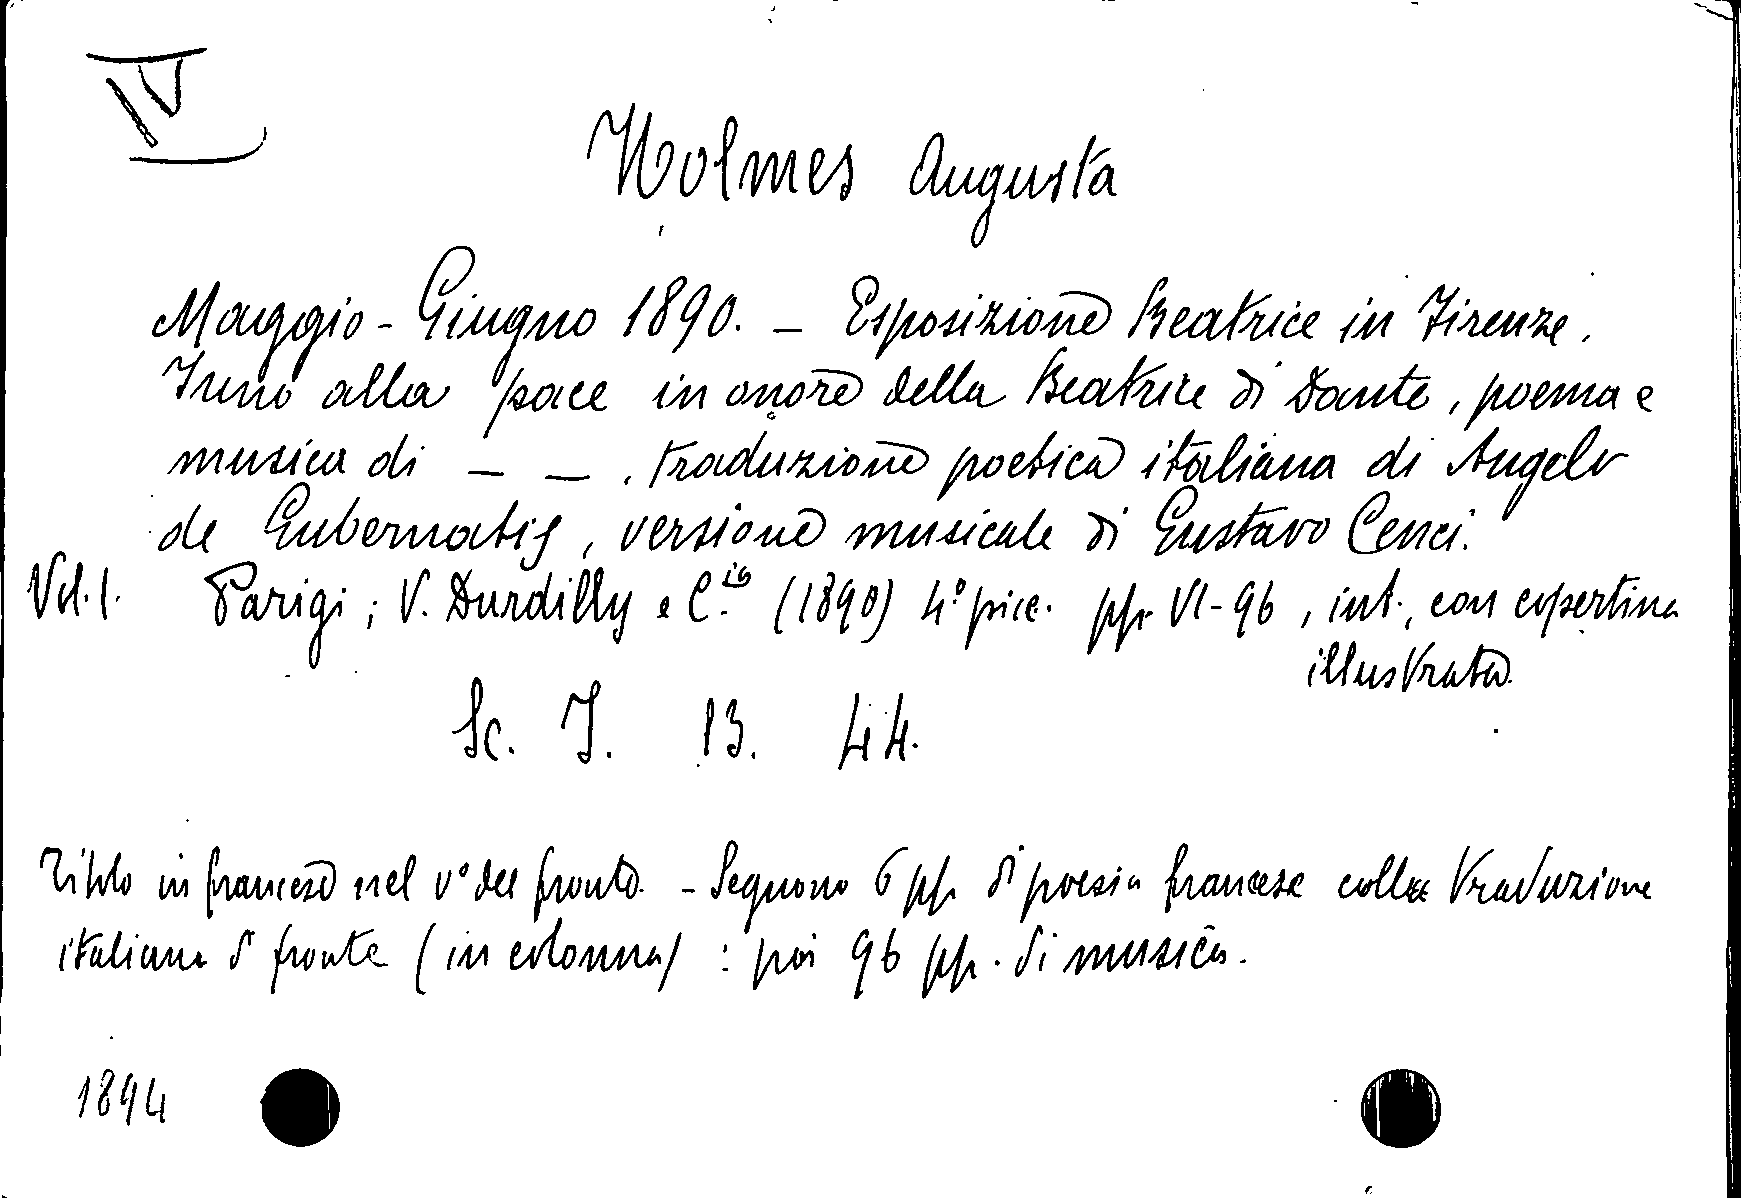 IV
Holmes Augusta
Maggio-Giugno 1890. - Esposizione Beatrice in Firenze.
Inno alla pace in onore della Beatrice di Dante, poema e
musica di - - , traduzione poetica italiana di Angelo
de Gubernatis, versione musicale di Gustavo Cenci.
Vol. 1. Parigi; V. Durdilly e C.ie (1890) 4° picc. pp. VI-96, int., con copertina
illustrata.
Sc. I. 13. 44.
Titolo in francese nel v° del fronte. - Seguono 6 pp. di poesia francese colla traduzione
italiana di fronte (in colonna) : poi 96 pp. di musica.
1894